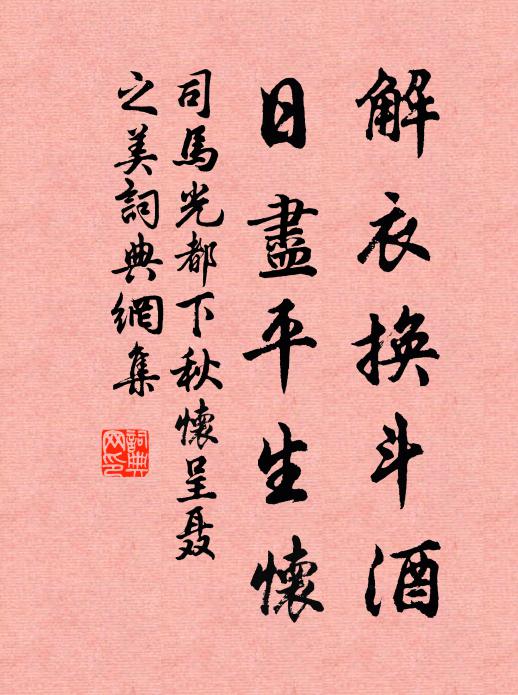 解衣換斗酒
日盡平生懷
司馬光都下秋懷呈聂
之美詞典網集
詞典
网印